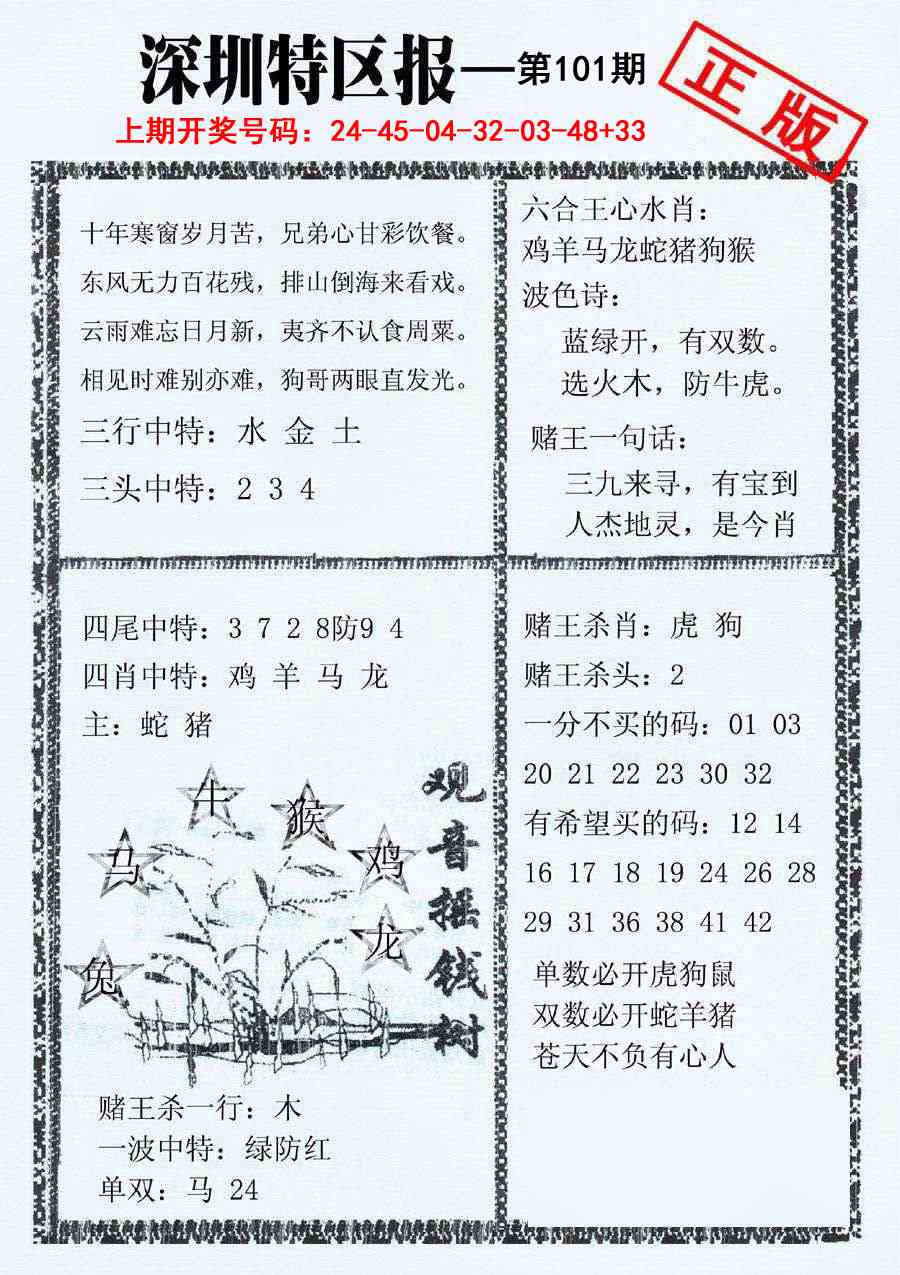 深圳特区报—第101期
正版
上期开奖号码：24-45-04-32-03-48+33
十年寒窗岁月苦，兄弟心甘彩饮餐。
东风无力百花残，排山倒海来看戏。
云雨难忘日月新，夷齐不认食周粟。
相见时难别亦难，狗哥两眼直发光。
三行中特：水 金 土
三头中特：2 3 4
六合王心水肖：
鸡羊马龙蛇猪狗猴
波色诗：
蓝绿开，有双数。
选火木，防牛虎。
赌王一句话：
三九来寻，有宝到
人杰地灵，是今肖
四尾中特：3 7 2 8防9 4
四肖中特：鸡 羊 马 龙
主：蛇 猪
牛
猴
马
鸡
龙
兔
观音摇钱树
赌王杀一行：木
一波中特：绿防红
单双：马 24
赌王杀肖：虎 狗
赌王杀头：2
一分不买的码：01 03
20 21 22 23 30 32
有希望买的码：12 14
16 17 18 19 24 26 28
29 31 36 38 41 42
单数必开虎狗鼠
双数必开蛇羊猪
苍天不负有心人